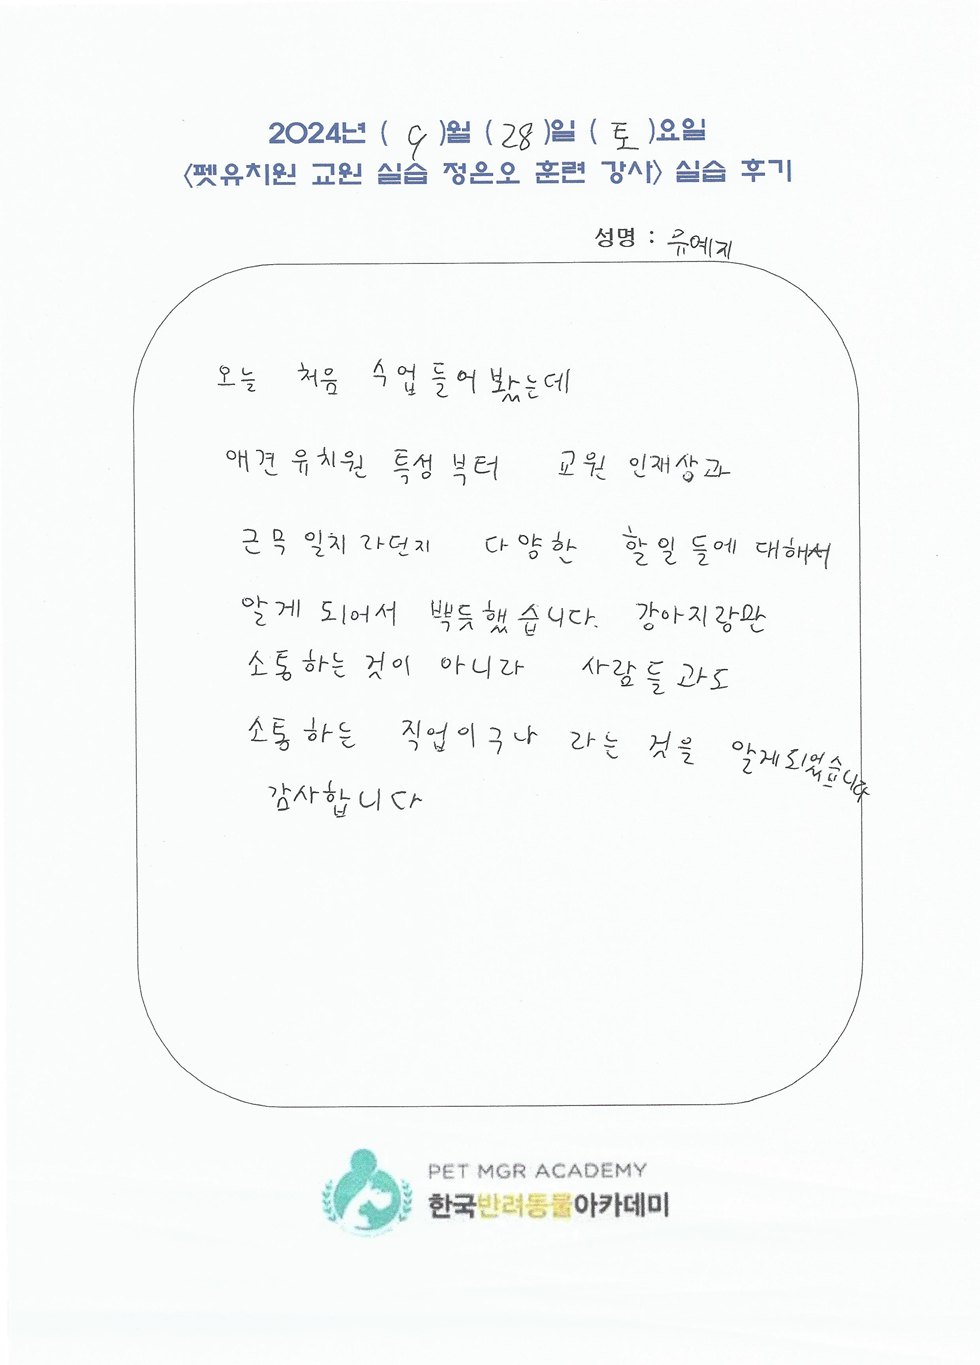 2024년 ( 9 )월 ( 28 )일 ( 토 )요일
<펫유치원 교원 실습 정은오 훈련 강사> 실습 후기
성명 : 류예지
오늘 처음 수업 들어 봤는데
애견 유치원 특성 부터 교원 인재상과
근무 일치 라던지 다양한 할 일 들에 대해서
알게 되어서 뿍듯했습니다. 강아지랑만
소통 하는 것이 아니라 사람들 과도
소통 하는 직업이구나 라는 것을 알게되었습니다
감사합니다
PET MGR ACADEMY
한국반려동물아카데미